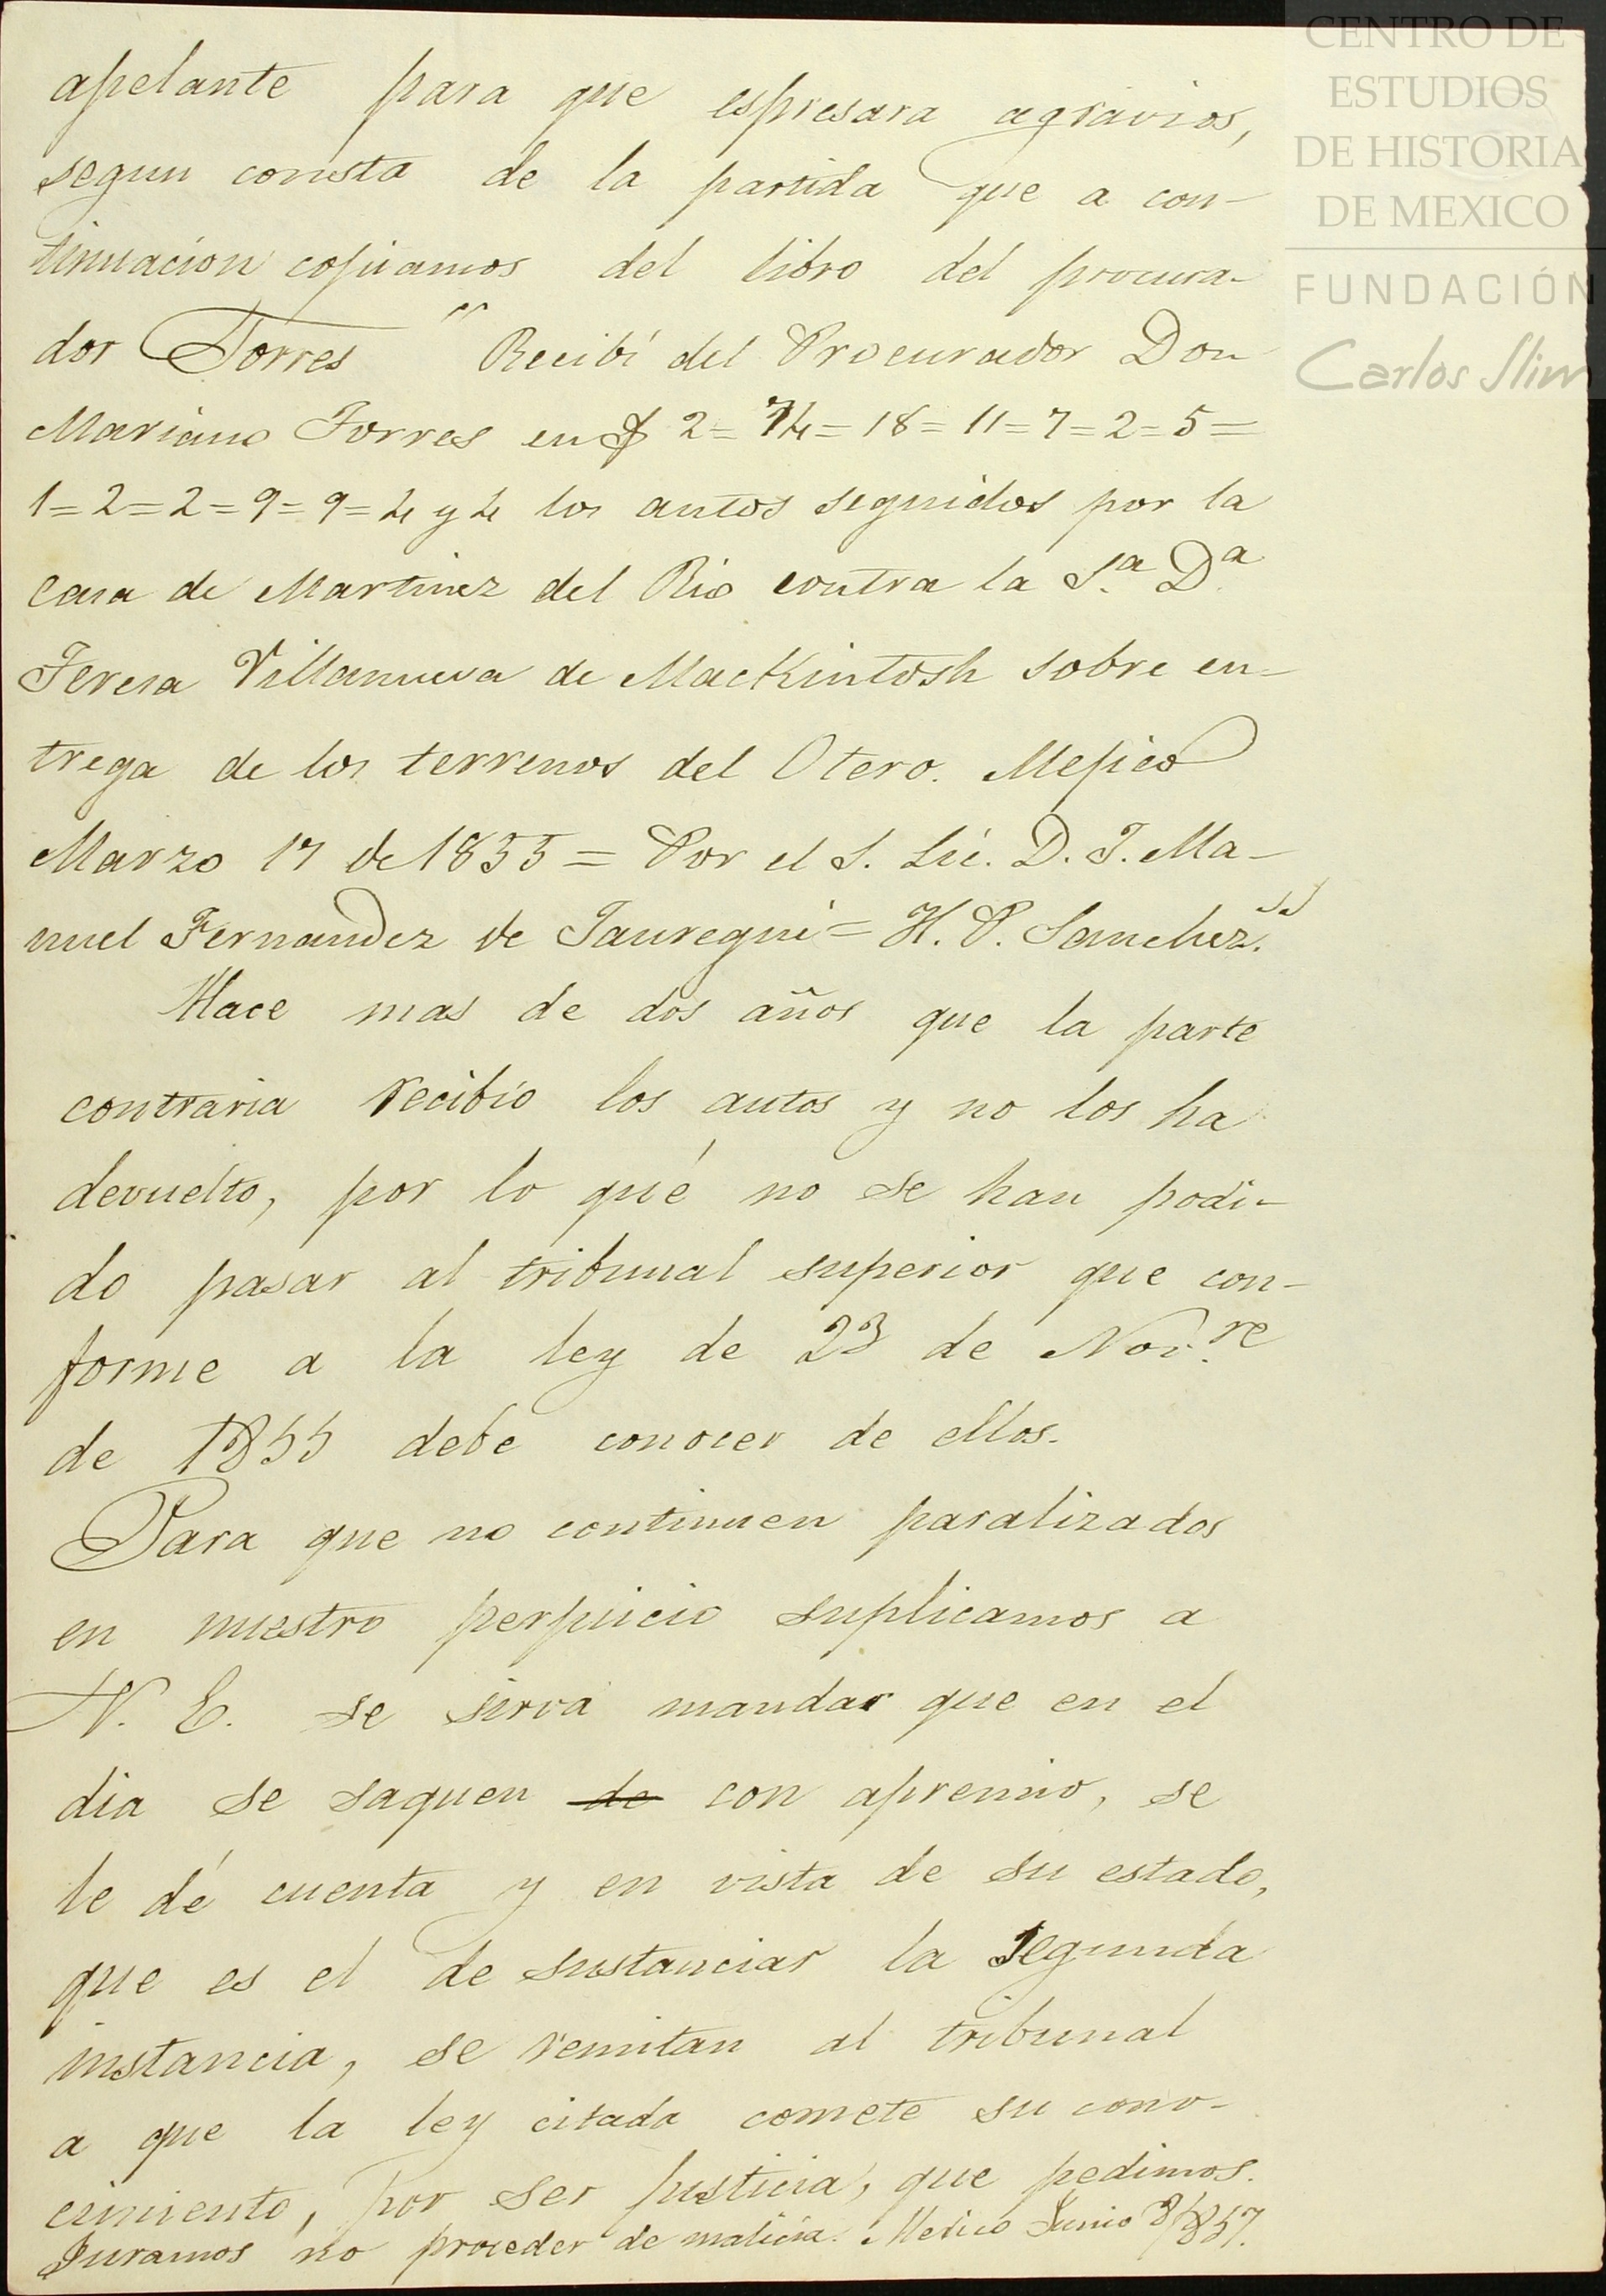 CENTRO DE
ESTUDIOS
DE HISTORIA
DE MEXICO
FUNDACIÓN
Carlos Slim
apelante para que espresara agravios,
segun consta de la partida que a con-
tinuacion copiamos del libro del procura-
dor Torres "Recibí del Procurador Don
Mariano Torres en f 2=74=18=11=7=2=5=
1=2=2=9=9=4 y 4 los autos seguidos por la
casa de Martinez del Rio contra la S.ª D.ª
Teresa Villanueva de MacKintosh sobre en-
trega de los terrenos del Otero. Mejico
Marzo 17 de 1855 = Por el S. Lic. D. J. Ma-
nuel Fernandez de Jauregui = H. P. Sanchez."
Hace mas de dos años que la parte
contraria recibió los autos y no los ha
devuelto, por lo qué no se han podi-
do pasar al tribunal superior que con-
forme a la ley de 23 de Nov.re
de 1855 debe conocer de ellos.
Para que no continuen paralizados
en nuestro perjuicio suplicamos a
V. E. se sirva mandar que en el
dia se saquen de con apremio, se
le dé cuenta y en vista de su estado,
que es el de sustanciar la segunda
instancia, se remitan al tribunal
a que la ley citada comete su cono-
cimiento, por ser justicia, que pedimos.
Juramos no proceder de malicia. Mexico Junio 8/857.